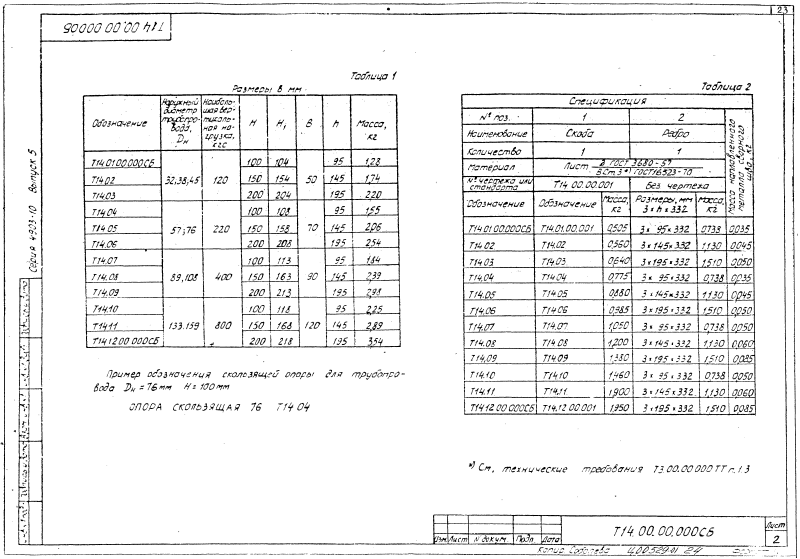 23
Т14 00.00 000СБ
Серия 4903-10 Выпуск 5
Таблица 1
Размеры в мм
Обозначение | Наружный диаметр трубопровода, Dн | Наибольшая вертикальная нагрузка, кгс | H | H1 | B | h | Масса, кг
Т14.01.00.000СБ | 32,38,45 | 120 | 100 | 104 | 50 | 95 | 1,28
Т14.02 | 150 | 154 | 145 | 1,74
Т14.03 | 200 | 204 | 195 | 2,20
Т14.04 | 57;76 | 220 | 100 | 108 | 70 | 95 | 1,55
Т14.05 | 150 | 158 | 145 | 2,06
Т14.06 | 200 | 208 | 195 | 2,54
Т14.07 | 89,108 | 400 | 100 | 113 | 90 | 95 | 1,84
Т14.08 | 150 | 163 | 145 | 2,39
Т14.09 | 200 | 213 | 195 | 2,98
Т14.10 | 133,159 | 800 | 100 | 118 | 120 | 95 | 2,25
Т14.11 | 150 | 168 | 145 | 2,89
Т14.12.00.000СБ | 200 | 218 | 195 | 3,54
Пример обозначения скользящей опоры для трубопро-
вода Dн = 76мм H = 100мм
ОПОРА СКОЛЬЗЯЩАЯ 76 Т14.04
Таблица 2
Спецификация | Масса наплавленного металла сварного шва, кг
№ поз. | 1 | 2
Наименование | Скоба | Ребро
Количество | 1 | 1
Материал | Лист 2 ГОСТ 3680-57 / В Ст 3 *) ГОСТ 16523-70
№ чертежа или стандарта | Т14.00.00.001 | Без чертежа
Обозначение | Обозначение | Масса, кг | Размеры, мм 3 × h × 332 | Масса, кг
Т14.01.00.000СБ | Т14.01.00.001 | 0,505 | 3 × 95 × 332 | 0,738 | 0,035
Т14.02 | Т14.02 | 0,560 | 3 × 145 × 332 | 1,130 | 0,045
Т14.03 | Т14.03 | 0,640 | 3 × 195 × 332 | 1,510 | 0,050
Т14.04 | Т14.04 | 0,775 | 3 × 95 × 332 | 0,738 | 0,035
Т14.05 | Т14.05 | 0,880 | 3 × 145 × 332 | 1,130 | 0,045
Т14.06 | Т14.06 | 0,985 | 3 × 195 × 332 | 1,510 | 0,050
Т14.07 | Т14.07 | 1,050 | 3 × 95 × 332 | 0,738 | 0,050
Т14.08 | Т14.08 | 1,200 | 3 × 145 × 332 | 1,130 | 0,060
Т14.09 | Т14.09 | 1,380 | 3 × 195 × 332 | 1,510 | 0,085
Т14.10 | Т14.10 | 1,460 | 3 × 95 × 332 | 0,738 | 0,050
Т14.11 | Т14.11. | 1,900 | 3 × 145 × 332 | 1,130 | 0,060
Т14.12.00.000СБ | Т14.12.00.001 | 1,950 | 3 × 195 × 332 | 1,510 | 0,085
*) См. технические требования Т3.00.00.000 ТТ п.1.3
Изм Лист № докум. Подп. Дата
Т14.00.00.000СБ
Лист
2
Копир. Соболева